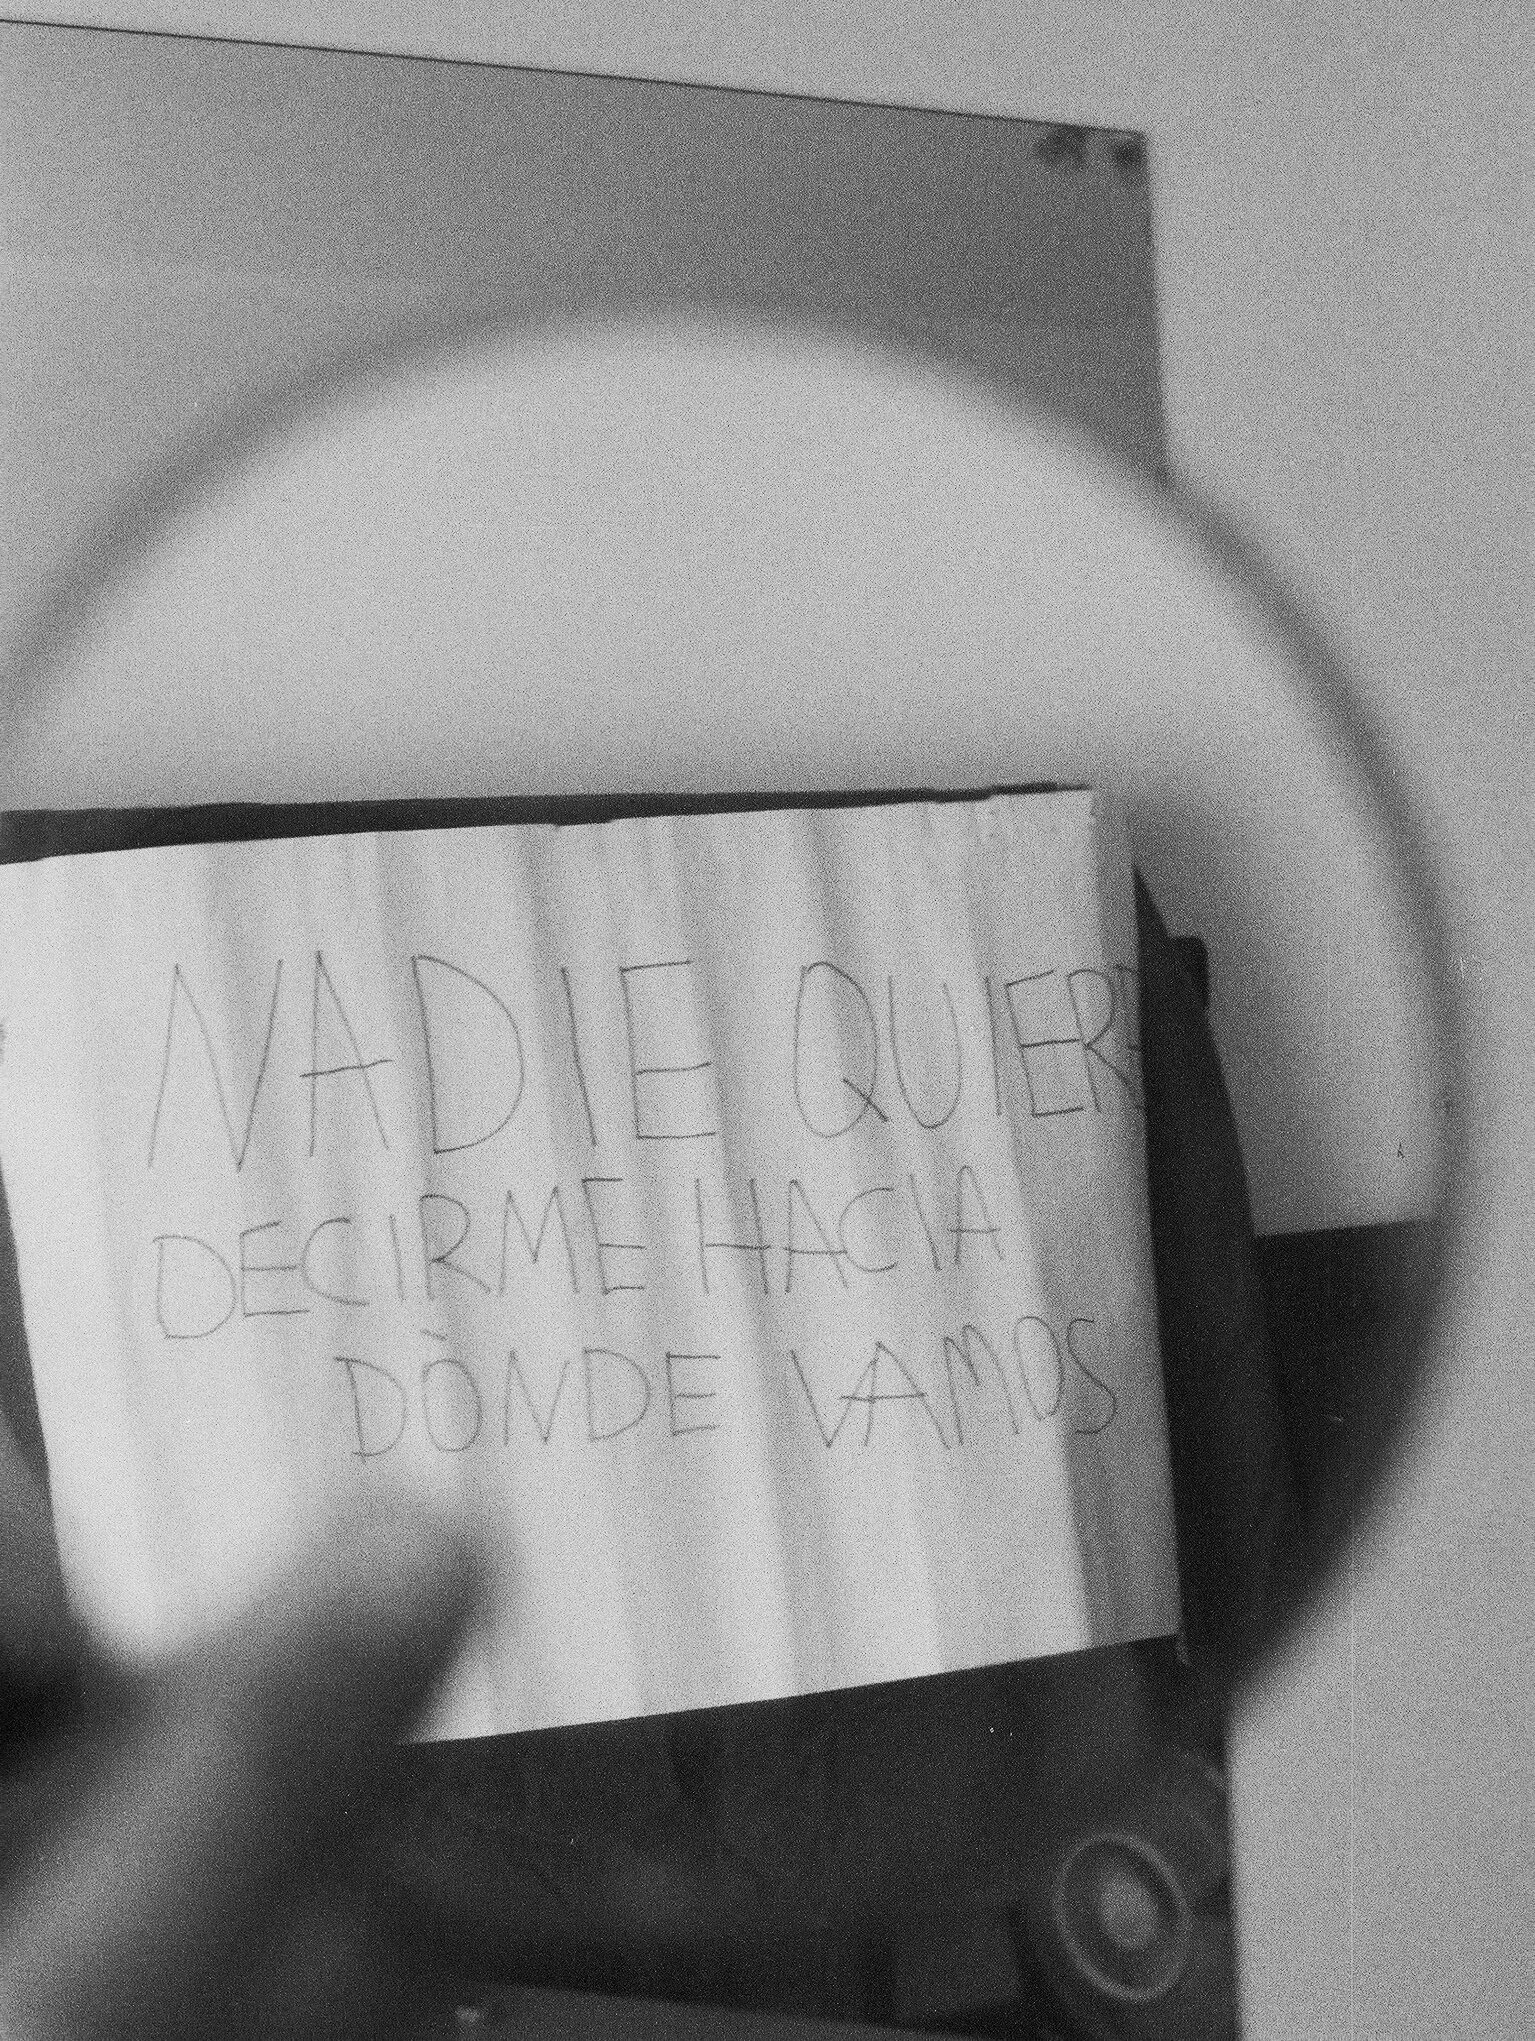 NADIE QUIERE
DECIRME HACIA
DÒNDE VAMOS